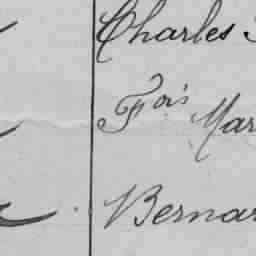 Charles
Fois Mar
Bernar